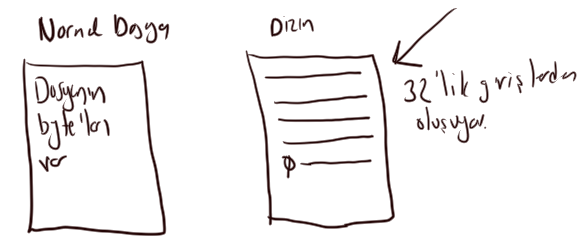 Normal Dosya
Dosyanın
byte'ları
var
Dizin
32'lik girişlerden
oluşuyor.